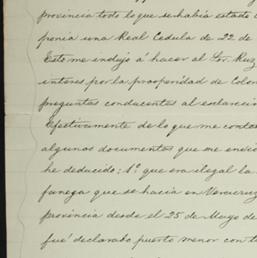 provincia todo lo que se habia estado
ponia una Real Cedula de 22 de
Este me indujo á hacer al Sor. Ruz
intores por la prosperidad de Colon
preguntas conducentes al esclareci
Efectivamente de lo que me conta
algunos documentos que me envió
he deducido: 1º que era ilegal la
fanega que se hacia en Veracruz
provincia desde el 25 de Mayo de
fué declarado puerto menor con t